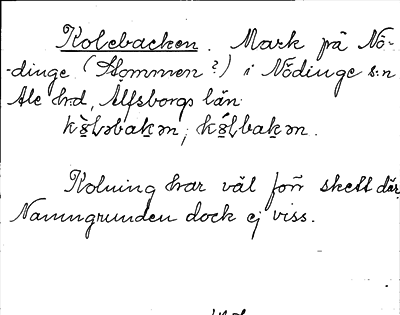 Kolebacken. Mark på Nö-
-dinge (Stommen?) i Nödinge s:n
Ale hrd, Älfsborgs län
Kolning har väl förr skett där.
Namngrunden dock ej viss.